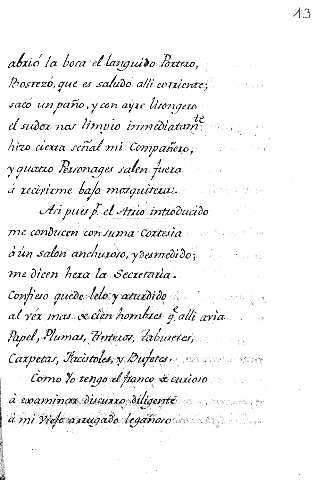 13
abrió la boca el languido Portero,
Bostezó, que es saludo alli corriente;
sacó un paño, y con ayre lisongero
el sudor nos limpio inmediatamte
hizo cierta señal mi Compañero,
y quatro Personages salen fuera
á recivirme bajo mosquitera.
Asi pues pr el Atrio introducido
me conducen con suma Cortesia
á un salon anchuroso, y desmedido;
me dicen hera la Secretaria.
Confieso quedé lelo y aturdido
al vér mas de cien hombres qe alli avia
Papel, Plumas, Tinteros, Taburetes,
Carpetas, Facistoles, y Bufetes.
Como Yo tengo el flanco de curioso
á examinar discurro diligente
á mi Viejo arrugado legañoso